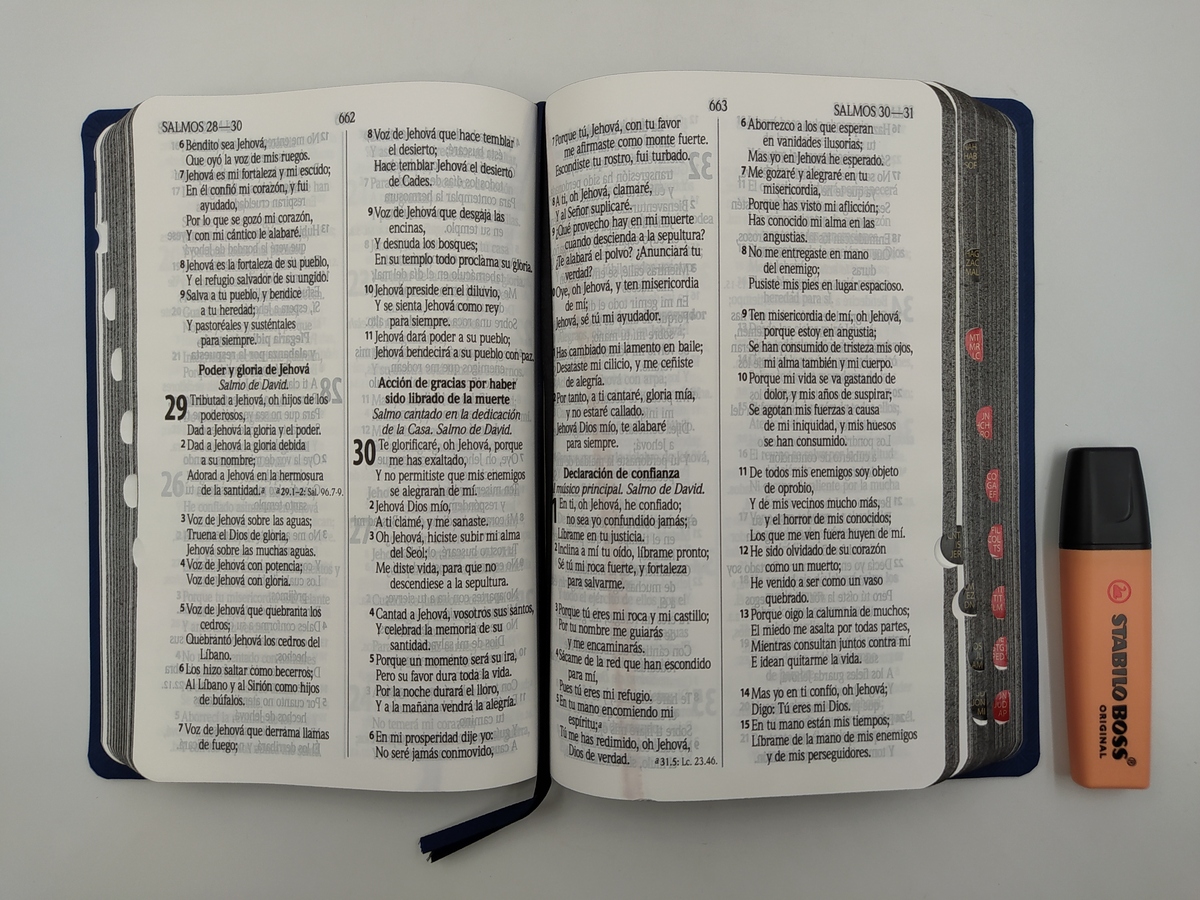 SALMOS 28—30
662
6 Bendito sea Jehová,
Que oyó la voz de mis ruegos.
7 Jehová es mi fortaleza y mi escudo;
En él confió mi corazón, y fui
ayudado,
Por lo que se gozó mi corazón,
Y con mi cántico le alabaré.
8 Jehová es la fortaleza de su pueblo,
Y el refugio salvador de su ungido.
9 Salva a tu pueblo, y bendice
a tu heredad;
Y pastoréales y susténtales
para siempre.
Poder y gloria de Jehová
Salmo de David.
29 Tributad a Jehová, oh hijos de los
poderosos,
Dad a Jehová la gloria y el poder.
2 Dad a Jehová la gloria debida
a su nombre;
Adorad a Jehová en la hermosura
de la santidad.a a 29.1-2: Sal. 96.7-9.
3 Voz de Jehová sobre las aguas;
Truena el Dios de gloria,
Jehová sobre las muchas aguas.
4 Voz de Jehová con potencia;
Voz de Jehová con gloria.
5 Voz de Jehová que quebranta los
cedros;
Quebrantó Jehová los cedros del
Líbano.
6 Los hizo saltar como becerros;
Al Líbano y al Sirión como hijos
de búfalos.
7 Voz de Jehová que derrama llamas
de fuego;
8 Voz de Jehová que hace temblar
el desierto;
Hace temblar Jehová el desierto
de Cades.
9 Voz de Jehová que desgaja las
encinas,
Y desnuda los bosques;
En su templo todo proclama su gloria.
10 Jehová preside en el diluvio,
Y se sienta Jehová como rey
para siempre.
11 Jehová dará poder a su pueblo;
Jehová bendecirá a su pueblo con paz.
Acción de gracias por haber
sido librado de la muerte
Salmo cantado en la dedicación
de la Casa. Salmo de David.
30 Te glorificaré, oh Jehová, porque
me has exaltado,
Y no permitiste que mis enemigos
se alegraran de mí.
2 Jehová Dios mío,
A ti clamé, y me sanaste.
3 Oh Jehová, hiciste subir mi alma
del Seol;
Me diste vida, para que no
descendiese a la sepultura.
4 Cantad a Jehová, vosotros sus santos,
Y celebrad la memoria de su
santidad.
5 Porque un momento será su ira,
Pero su favor dura toda la vida.
Por la noche durará el lloro,
Y a la mañana vendrá la alegría.
6 En mi prosperidad dije yo:
No seré jamás conmovido,
663
SALMOS 30—31
7 Porque tú, Jehová, con tu favor
me afirmaste como monte fuerte.
Escondiste tu rostro, fui turbado.
8 A ti, oh Jehová, clamaré,
Y al Señor suplicaré.
9 ¿Qué provecho hay en mi muerte
cuando descienda a la sepultura?
¿Te alabará el polvo? ¿Anunciará tu
verdad?
Oye, oh Jehová, y ten misericordia
de mí;
Jehová, sé tú mi ayudador.
Has cambiado mi lamento en baile;
Desataste mi cilicio, y me ceñiste
de alegría.
Por tanto, a ti cantaré, gloria mía,
y no estaré callado.
Jehová Dios mío, te alabaré
para siempre.
Declaración de confianza
músico principal. Salmo de David.
En ti, oh Jehová, he confiado;
no sea yo confundido jamás;
Líbrame en tu justicia.
2 Inclina a mí tu oído, líbrame pronto;
Sé tú mi roca fuerte, y fortaleza
para salvarme.
3 Porque tú eres mi roca y mi castillo;
Por tu nombre me guiarás
y me encaminarás.
4 Sácame de la red que han escondido
para mí,
Pues tú eres mi refugio.
5 En tu mano encomiendo mi
espíritu;a
Tú me has redimido, oh Jehová,
Dios de verdad. a 31.5: Lc. 23.46.
6 Aborrezco a los que esperan
en vanidades ilusorias;
Mas yo en Jehová he esperado.
7 Me gozaré y alegraré en tu
misericordia,
Porque has visto mi aflicción;
Has conocido mi alma en las
angustias.
8 No me entregaste en mano
del enemigo;
Pusiste mis pies en lugar espacioso.
9 Ten misericordia de mí, oh Jehová,
porque estoy en angustia;
Se han consumido de tristeza mis ojos,
mi alma también y mi cuerpo.
10 Porque mi vida se va gastando de
dolor, y mis años de suspirar;
Se agotan mis fuerzas a causa
de mi iniquidad, y mis huesos
se han consumido.
11 De todos mis enemigos soy objeto
de oprobio,
Y de mis vecinos mucho más,
y el horror de mis conocidos;
Los que me ven fuera huyen de mí.
12 He sido olvidado de su corazón
como un muerto;
He venido a ser como un vaso
quebrado.
13 Porque oigo la calumnia de muchos;
El miedo me asalta por todas partes,
Mientras consultan juntos contra mí
E idean quitarme la vida.
14 Mas yo en ti confío, oh Jehová;
Digo: Tú eres mi Dios.
15 En tu mano están mis tiempos;
Líbrame de la mano de mis enemigos
y de mis perseguidores.
STABILO BOSS
ORIGINAL